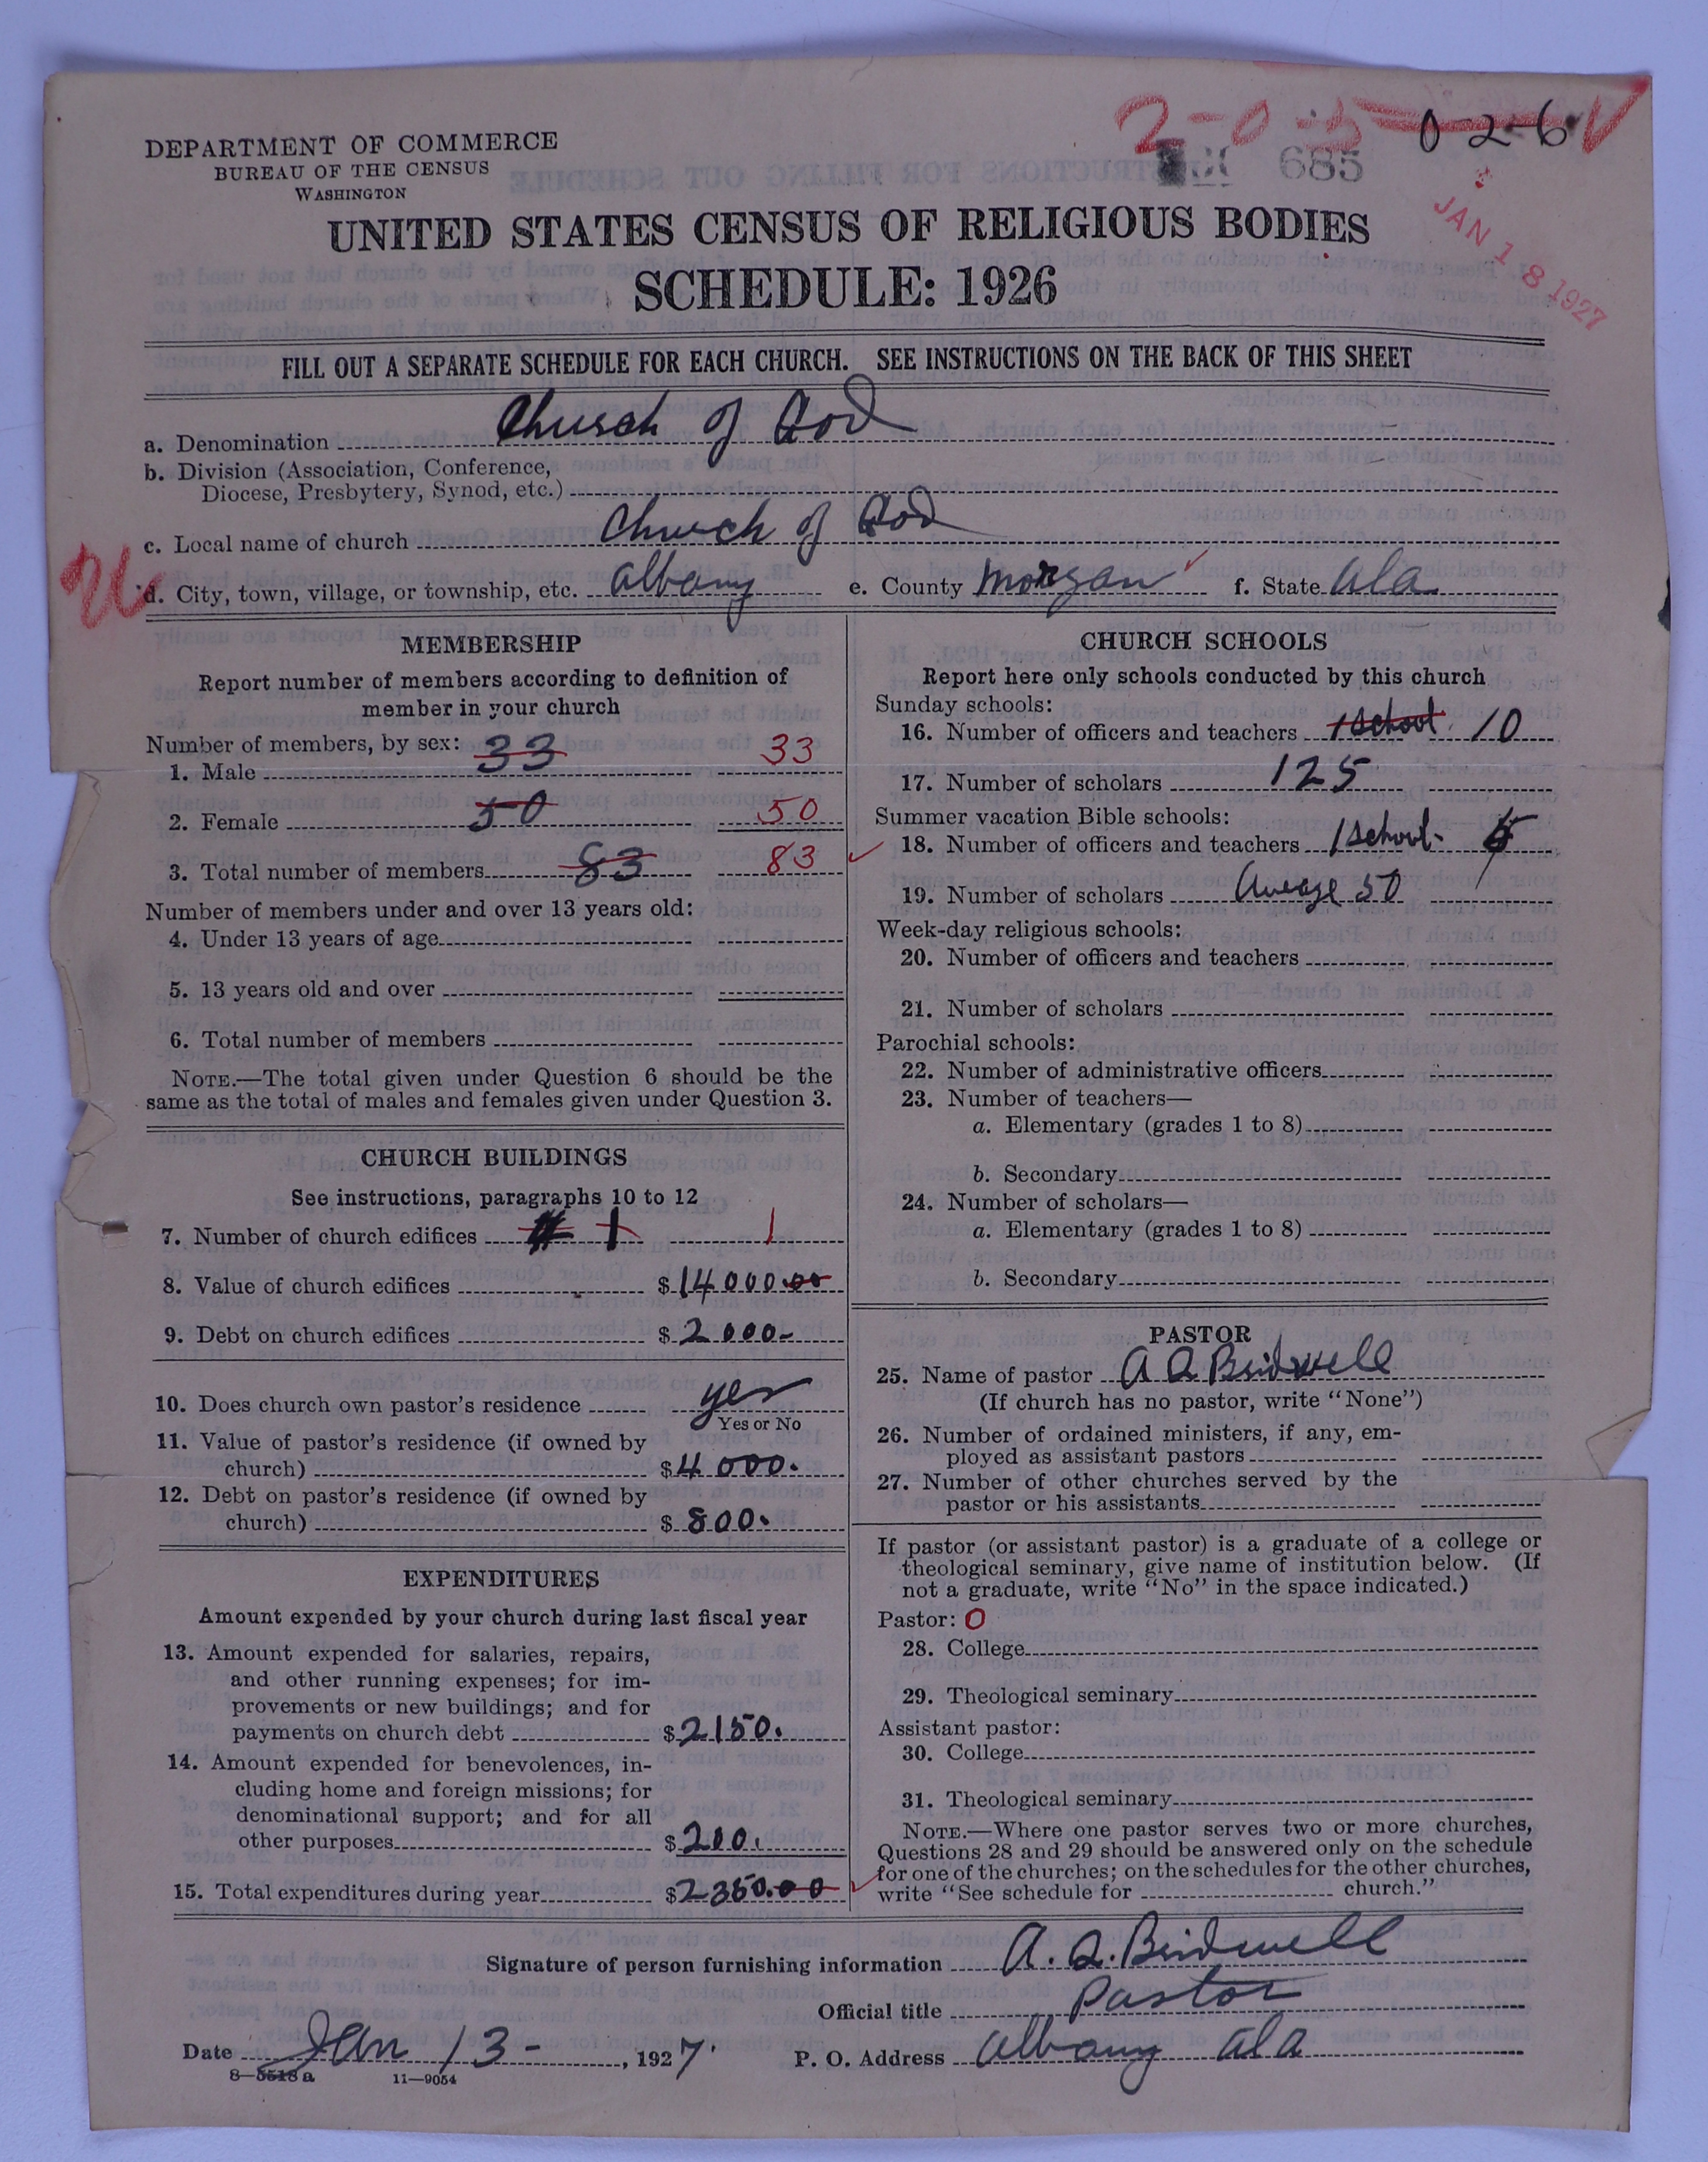 2-0-5 0-2-6
DEPARTMENT OF COMMERCE
BUREAU OF THE CENSUS
WASHINGTON
685
JAN 18 1927
UNITED STATES CENSUS OF RELIGIOUS BODIES
SCHEDULE: 1926
FILL OUT A SEPARATE SCHEDULE FOR EACH CHURCH. SEE INSTRUCTIONS ON THE BACK OF THIS SHEET
a. Denomination Church of God
b. Division (Association, Conference,
Diocese, Presbytery, Synod, etc.)
c. Local name of church Church of God
d. City, town, village, or township, etc. Albany e. County Morgan f. State Ala
MEMBERSHIP
Report number of members according to definition of
member in your church
Number of members, by sex:
1. Male 33 33
2. Female 50 50
3. Total number of members 83 83
Number of members under and over 13 years old:
4. Under 13 years of age
5. 13 years old and over
6. Total number of members
NOTE.—The total given under Question 6 should be the
same as the total of males and females given under Question 3.
CHURCH BUILDINGS
See instructions, paragraphs 10 to 12
7. Number of church edifices 1 1
8. Value of church edifices $14000.00
9. Debt on church edifices $2000-
10. Does church own pastor's residence yes
Yes or No
11. Value of pastor's residence (if owned by
church) $4000.
12. Debt on pastor's residence (if owned by
church) $800.
EXPENDITURES
Amount expended by your church during last fiscal year
13. Amount expended for salaries, repairs,
and other running expenses; for im-
provements or new buildings; and for
payments on church debt $2150.
14. Amount expended for benevolences, in-
cluding home and foreign missions; for
denominational support; and for all
other purposes $200.
15. Total expenditures during year $2350.00
CHURCH SCHOOLS
Report here only schools conducted by this church
Sunday schools:
16. Number of officers and teachers 1 school 10
17. Number of scholars 125
Summer vacation Bible schools:
18. Number of officers and teachers 1 school-
19. Number of scholars Averge 50
Week-day religious schools:
20. Number of officers and teachers
21. Number of scholars
Parochial schools:
22. Number of administrative officers
23. Number of teachers—
a. Elementary (grades 1 to 8)
b. Secondary
24. Number of scholars—
a. Elementary (grades 1 to 8)
b. Secondary
PASTOR
25. Name of pastor A Q Bridwell
(If church has no pastor, write "None")
26. Number of ordained ministers, if any, em-
ployed as assistant pastors
27. Number of other churches served by the
pastor or his assistants
If pastor (or assistant pastor) is a graduate of a college or
theological seminary, give name of institution below. (If
not a graduate, write "No" in the space indicated.)
Pastor: O
28. College
29. Theological seminary
Assistant pastor:
30. College
31. Theological seminary
NOTE.—Where one pastor serves two or more churches,
Questions 28 and 29 should be answered only on the schedule
for one of the churches; on the schedules for the other churches,
write "See schedule for church."
Signature of person furnishing information A. Q. Bridwell
Official title Pastor
Date Jan 13-, 1927. P. O. Address Albany Ala
8—5518 a 11—9054